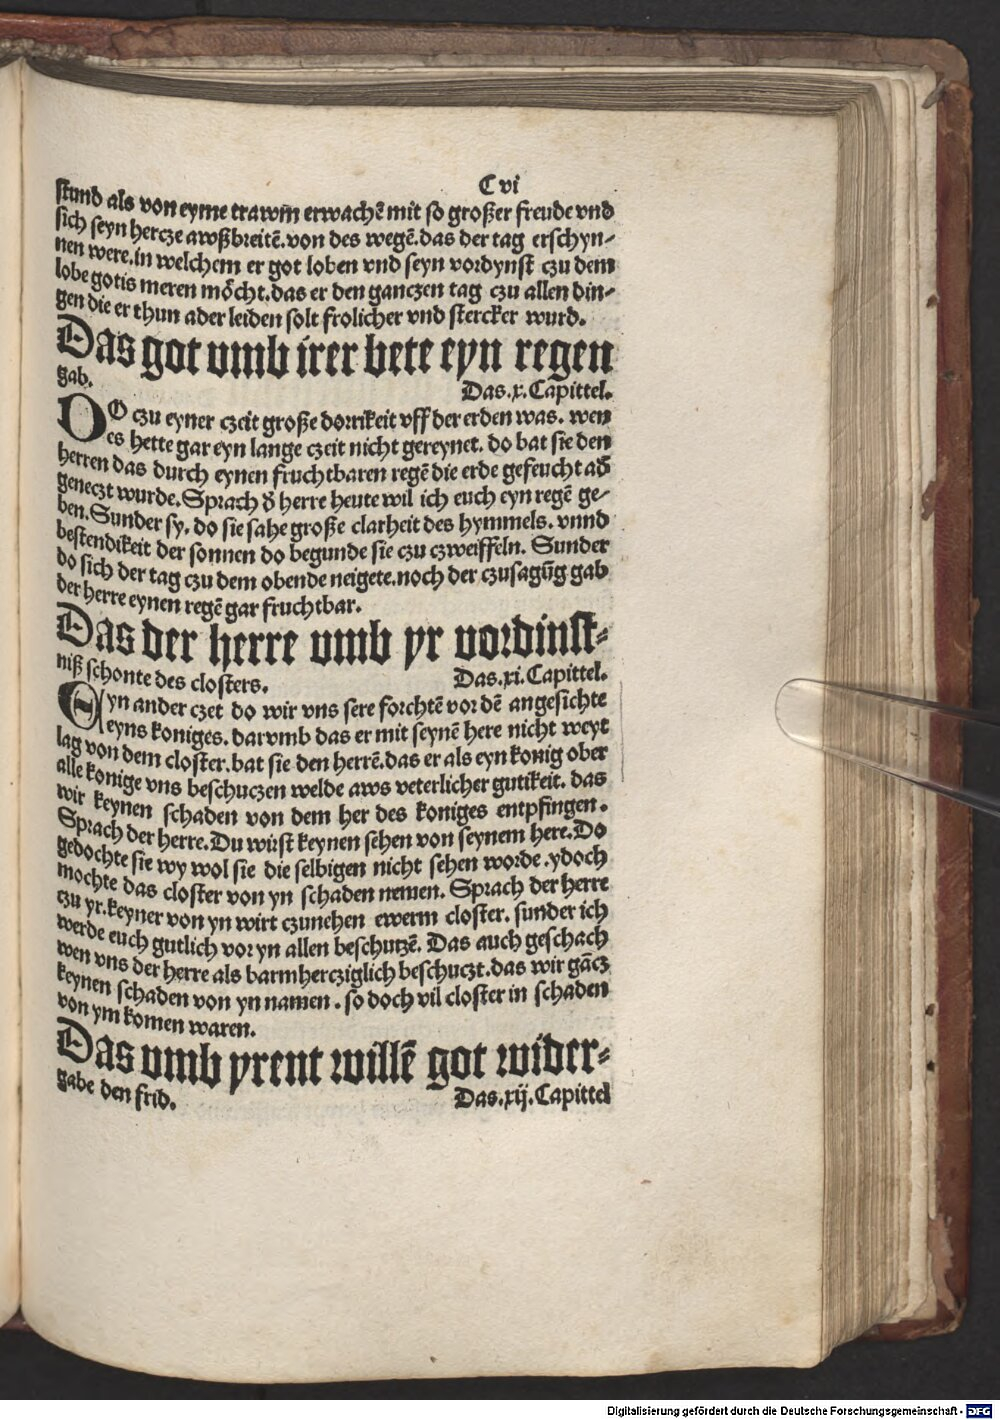 C vi
stund als von eyme trawm̄ erwachē mit so großer freude vnd
sich seyn hercze awßbreitē. von des wegē. das der tag erschyn⸗
nen were. in welchem er got loben vnd seyn vordynst czu dem
lobe gotis meren möcht. das er den ganczen tag czu allen din⸗
gen die er thun ader leiden solt frolicher vnd stercker wurd.
Das got vmb irer bete eyn regen
gab. Das .x. Capittel.
DO czu eyner czeit große dorrikeit vff der erden was. wen
es hette gar eyn lange czeit nicht gereynet. do bat sie den
herren das durch eynen fruchtbaren regē die erde gefeucht ad̄
geneczt wurde. Sprach d̄ herre heute wil ich euch eyn regē ge⸗
ben. Sunder sy. do sie sahe große clarheit des hymmels. vnnd
bestendikeit der sonnen do begunde sie czu czweiffeln. Sunder
do sich der tag czu dem obende neigete. noch der czusagūg gab
der herre eynen regē gar fruchtbar.
Das der herre vmb yr vordinst⸗
niß schonte des closters. Das .xi. Capittel.
Eyn ander czet do wir vns sere forchtē vor dē angesichte
eyns koniges. darvmb das er mit seynē here nicht weyt
lag von dem closter. bat sie den herrē. das er als eyn konig ober
alle konige vns beschuczen welde aws veterlicher gutikeit. das
wir keynen schaden von dem her des koniges entpfingen.
Sprach der herre. Du wirst keynen sehen von seynem here. Do
gedochte sie wy wol sie die selbigen nicht sehen worde. ydoch
mochte das closter von yn schaden nemen. Sprach der herre
czu yr. keyner von yn wirt czunehen ewerm closter. sunder ich
werde euch gutlich vor yn allen beschutzē. Das auch geschach
wen vns der herre als barmhercziglich beschuczt. das wir gācz
keynen schaden von yn namen. so doch vil closter in schaden
von ym komen waren.
Das vmb yrent willē got wider⸗
gabe den frid. Das .xij. Capittel
Digitalisierung gefördert durch die Deutsche Forschungsgemeinschaft - DFG